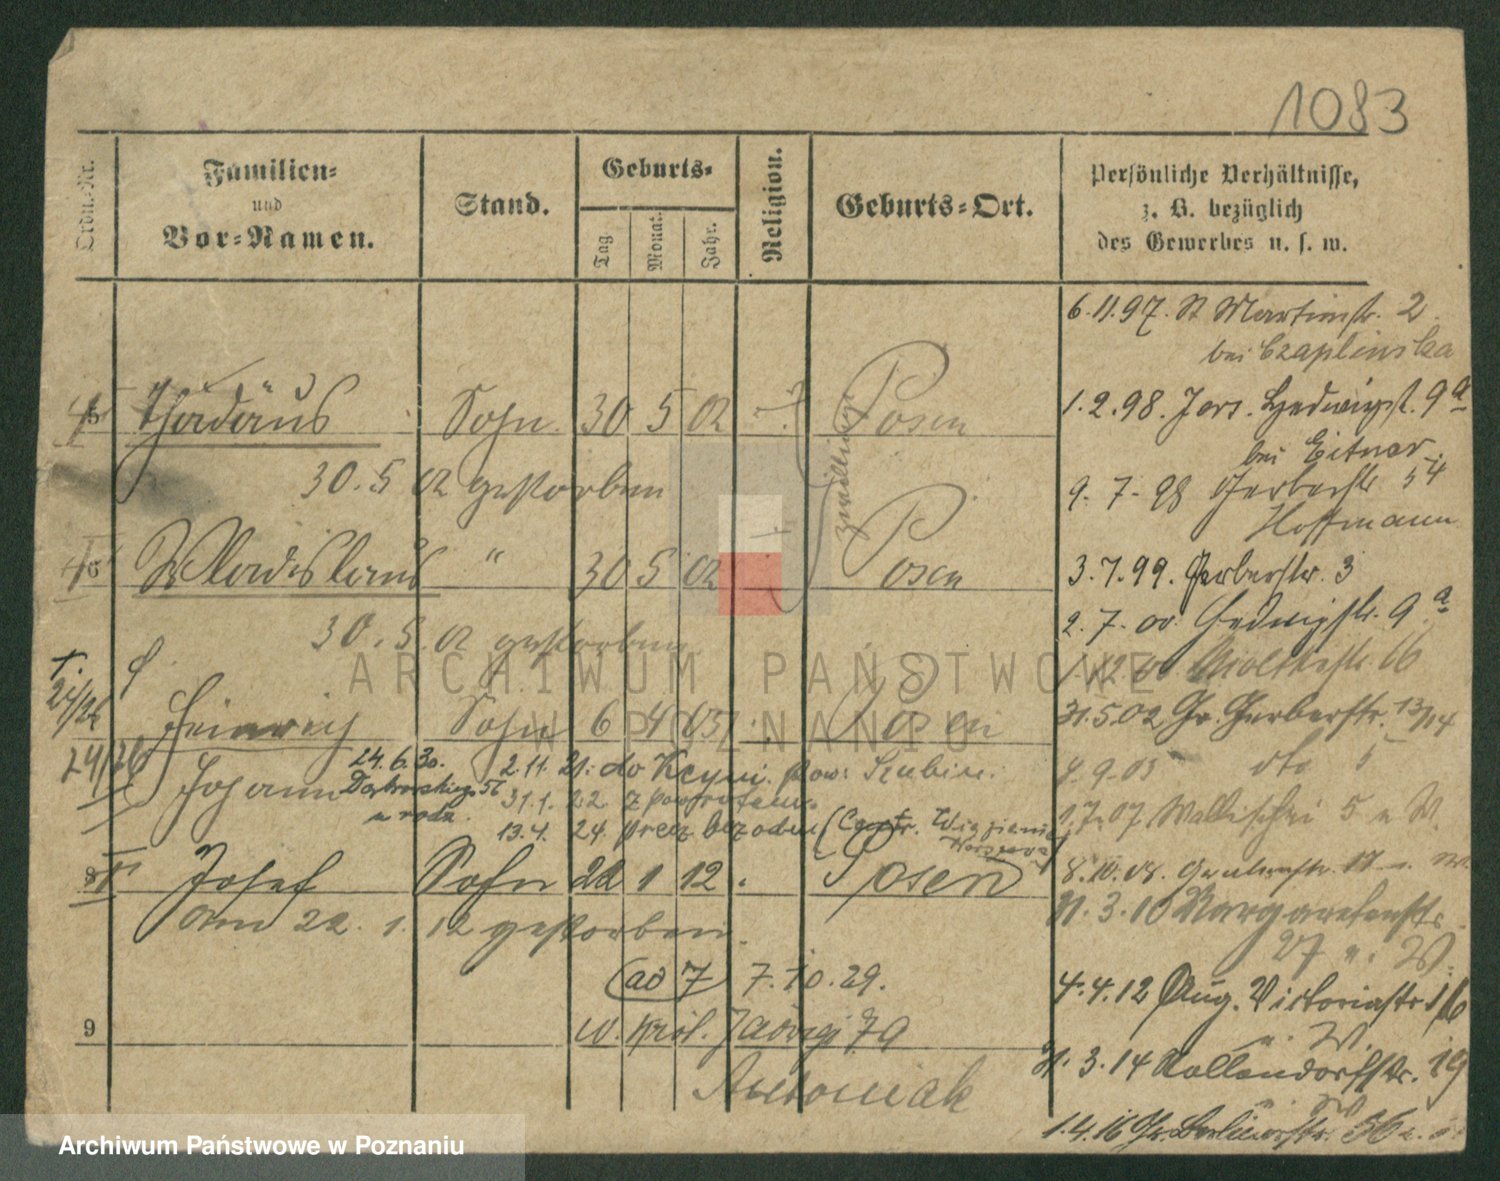 1083
Ordn.-Nr.
Familien-
und
Vor-Namen.
Stand.
Geburts-
Tag
Monat.
Jahr.
Religion.
Geburts-Ort.
Persönliche Verhältnisse,
z. B. bezüglich
des Gewerbes u. s. w.
6.11.97. St Martinstr. 2
bei Czaplinska
5 Thadäus Sohn 30 5 02 Posen
Zwillinge
1.2.98. Hedwigst. 9a
bei Eitner
30.5 02 gestorben
9.7.98 Gerberstr 54
Hoffmann
6 Wladislaus " 30 5 02 Posen
3.7.99. Gerberstr. 3
2.7.00. Hedwigstr. 9a
30.5.02 gestorben
Moltkestr. 16
24/26
Heinrich Sohn 6 4 03 Posen
31.5.02 Gr. Gerberstr. 13/14
24/26
Johann 24.6.30. 2.11.21. do Kcyni. pow. Szubin.
Dąbrowskiego 56 31.1.22 z powrotem.
u rodz. 13.4.24. precz bez odm (Centr. Więzienie
9.03 dto 5
1.7.07 Wallischei 5 u W.
8 Josef Sohn 22 1 12 Posen
8.10.08.
am 22.1.12 gestorben.
31.3.10 Margaretenstr
27 u. W.
(ad 7) 7.10.29.
4.4.12 Aug. Victoriastr 16
u. W.
9
w. Król. Jadwigi 79
Antoniak
31.3.14 Kollendorfstr. 19
u. W
1.4.16 Gr. Berlinerstr. 56
ARCHIWUM PAŃSTWOWE
W POZNANIU
Archiwum Państwowe w Poznaniu